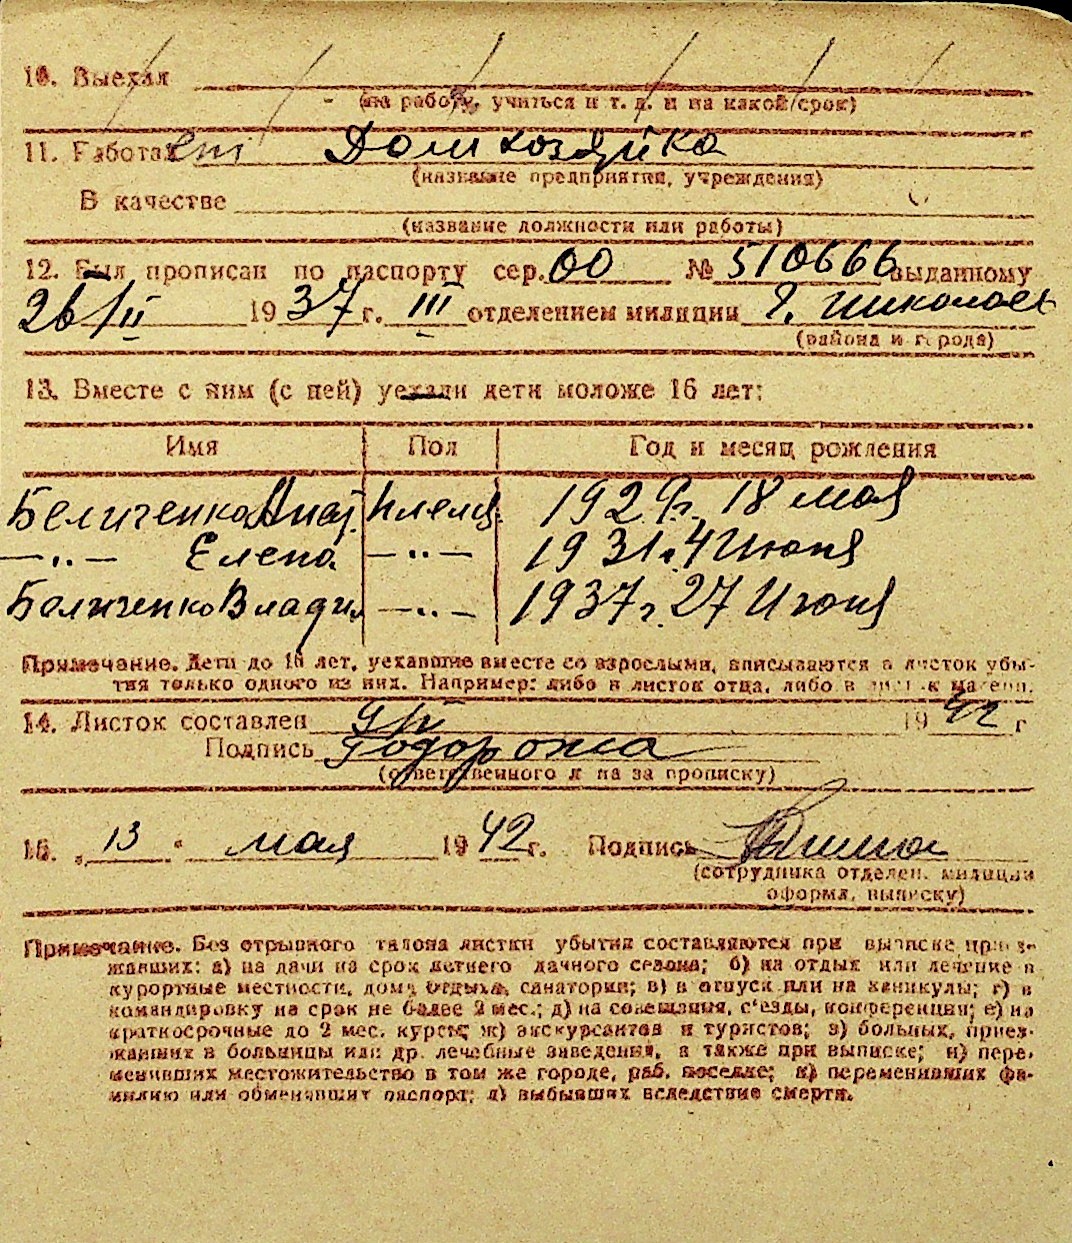 10. Выехал
(на работу, учиться и т. д. и на какой срок)
11. Работает Дом хозяйка
(название предприятия, учреждения)
В качестве
(название должности или работы)
12. Был прописан по паспорту сер. 00 № 510666 выданному
26/II 1937 г. III отделением милиции г. Николаев
(района и города)
13. Вместе с ним (с ней) уехали дети моложе 16 лет:
Имя Пол Год и месяц рождения
Беличенко Анат. 192 г. 18 мая
—"— Елена —"— 1931 г. 4 Июня
Беличенко Владил —"— 1937 г. 27 Июня
Примечание. Дети до 16 лет, уехавшие вместе со взрослыми, вписываются в листок убы-
тия только одного из них. Например: либо в листок отца, либо в листок матери.
14. Листок составлен 1942 г
Подпись
(ответственного лица за прописку)
15. „13" мая 1942 г. Подпись
(сотрудника отделен. милиции
оформл. выписку)
Примечание. Без отрывного талона листки убытия составляются при выписке приез-
жавших: а) на дачи на срок летнего дачного сезона; б) на отдых или лечение в
курортные местности, дома отдыха, санатории; в) в отпуск или на каникулы; г) в
командировку на срок не более 2 мес.; д) на совещания, с'езды, конференции; е) на
краткосрочные до 2 мес. курсы; ж) экскурсантов и туристов; з) больных, приез-
жавших в больницы или др. лечебные заведения, а также при выписке; и) пере-
менивших местожительство в том же городе, раб. поселке; к) переменивших фа-
милию или обменявших паспорт; л) выбывших вследствие смерти.